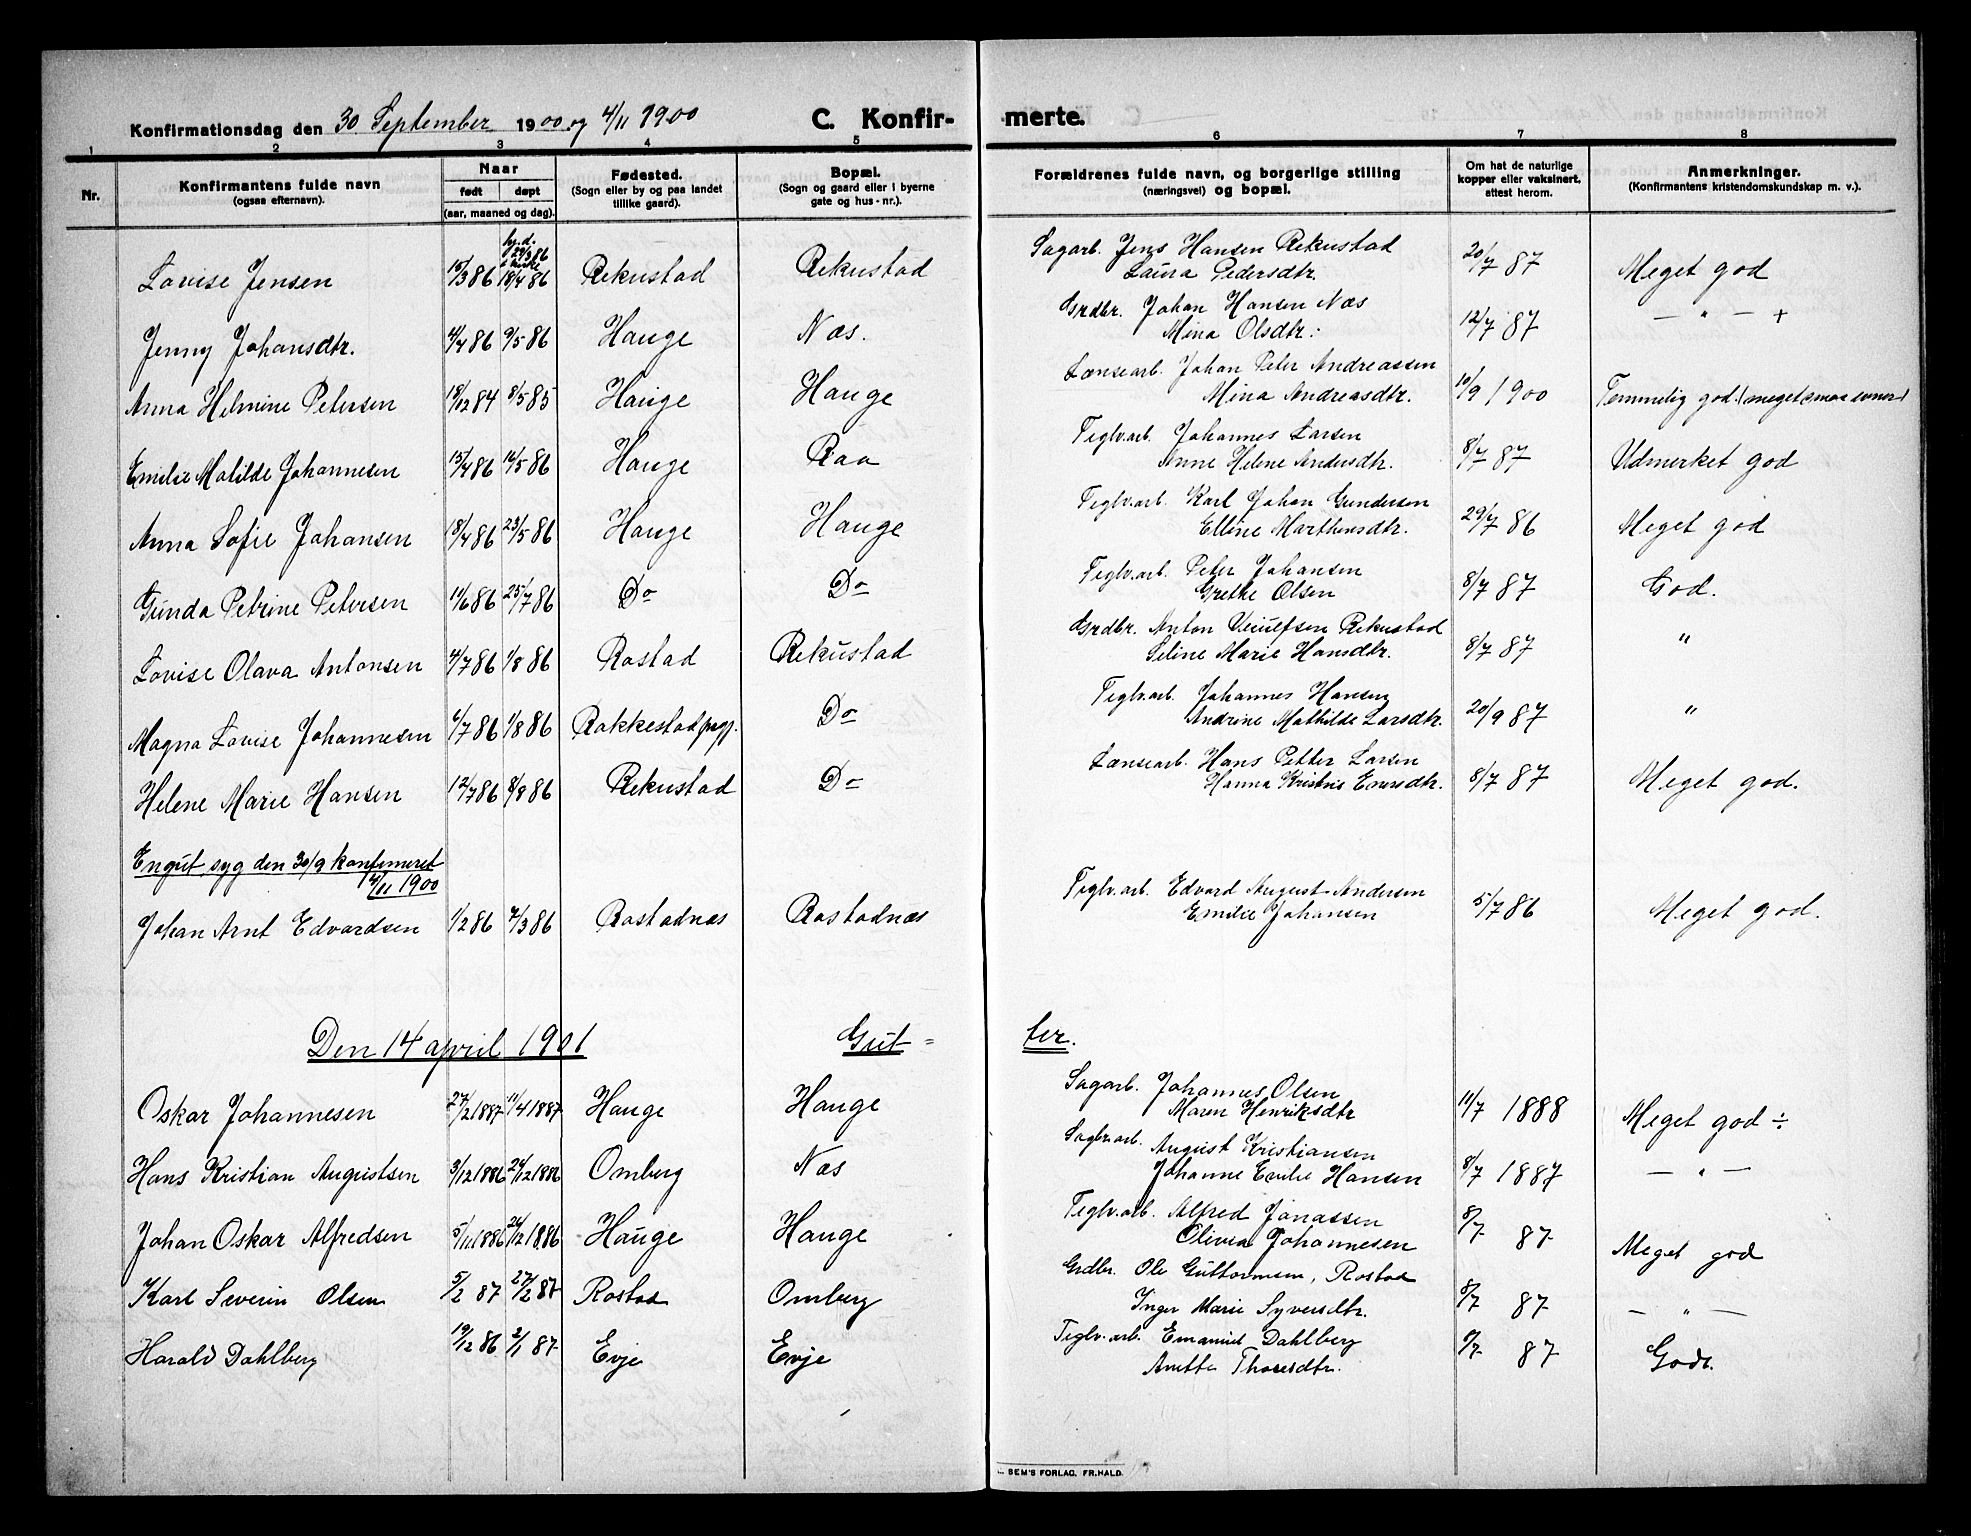 Konfirmationsdag den 30 September 1900 og 4/11 1900 C. Konfir- merte.
1 2 3 4 5 6 7 8
Nr. Konfirmantens fulde navn (ogsaa efternavn). Naar født døpt (aar, maaned og dag). Fødested. (Sogn eller by og paa landet tillike gaard). Bopæl. (Sogn og gaard eller i byerne gate og hus-nr.). Forældrenes fulde navn, og borgerlige stilling (næringsvei) og bopæl. Om hat de naturlige kopper eller vaksinert, attest herom. Anmerkninger. (Konfirmantens kristendomskundskap m. v.).
hj.d. 29/3 86
Lovise Jensen 15/3 86 kirke 18/4 86 Rekustad Rekustad Sagarb. Jens Hansen Rekustad
Laura Pedersdtr. 20/7 87 Meget god
Jenny Johansdtr. 4/4 86 9/5 86 Hauge Næs. Grdbr. Johan Hansen Næs
Mina Olsdtr: 12/7 87 — " — +
Anna Helmine Petersen 18/12 84 8/5 85 Hauge Hauge Lænsearb. Johan Peter Andreassen
Mina Andreasdtr. 10/9 1900 Temmelig god (meget smaa evner)
Emilie Matilde Johannesen 15/4 86 16/5 86 Hauge Raa Teglv.arb. Johannes Larsen
Anne Helene Andersdtr. 8/7 87 Udmerket god
Anna Sofie Johansen 18/4 86 23/5 86 Hauge Hauge Teglv.arb. Karl Johan Gundersen
Elline Marthinsdtr. 29/7 86 Meget god
Gunda Petrine Petersen 11/6 86 25/7 86 Do Do Teglv.arb. Peter Johansen
Grethe Olsen 8/7 87 God.
Lovise Olava Antonsen 4/7 86 1/8 86 Rostad Rekustad Grdbr. Anton Rekustad
Seline Marie Hansdtr. 8/7 87 "
Magna Lovise Johannesen 6/7 86 1/8 86 Rakkestad prgj. Do Teglv.arb. Johannes Hansen
Andrine Mathilde Larsdtr. 20/9 87 "
Helene Marie Hansen 12/7 86 8/8 86 Rekustad Do Lænsearb. Hans Petter Larsen
Hanna Kristine Enersdtr. 8/7 87 Meget god.
En gut, syg den 30/9 konfirmeret
4/11 1900
Johan Arnt Edvardsen 1/2 86 7/3 86 Rostadnæs Rostadnæs Teglv.arb. Edvard August Andersen
Emilie Johansen 5/7 86 Meget god.
Den 14 april 1901 Gut- ter.
Oskar Johannesen 27/2 1887 11/4 1887 Hauge Hauge Sagarb. Johannes Olsen
Maren Henriksdtr 11/7 1888 Meget god ÷
Hans Kristian Augustsen 3/12 1886 26/12 1886 Omberg Næs Sagbr.arb. August Kristiansen
Johanne Emilie Hansen 8/7 1887 — " —
Johan Oskar Alfredsen 5/11 1886 26/12 1886 Hauge Hauge Teglv.arb. Alfred Jonassen
Olivia Johannesen 8/7 87 Meget god
Karl Severin Olsen 5/2 87 27/2 87 Rostad Omberg Grdbr. Ole Guttormsen, Rostad
Inger Marie Syversdtr. 8/7 87 — " —
Harald Dahlberg 19/12 86 2/1 87 Evje Evje Teglv.arb. Emanuel Dahlberg
Anette Thoresdtr. 8/7 87 Godt.
SEM'S FORLAG, FR.HALD.